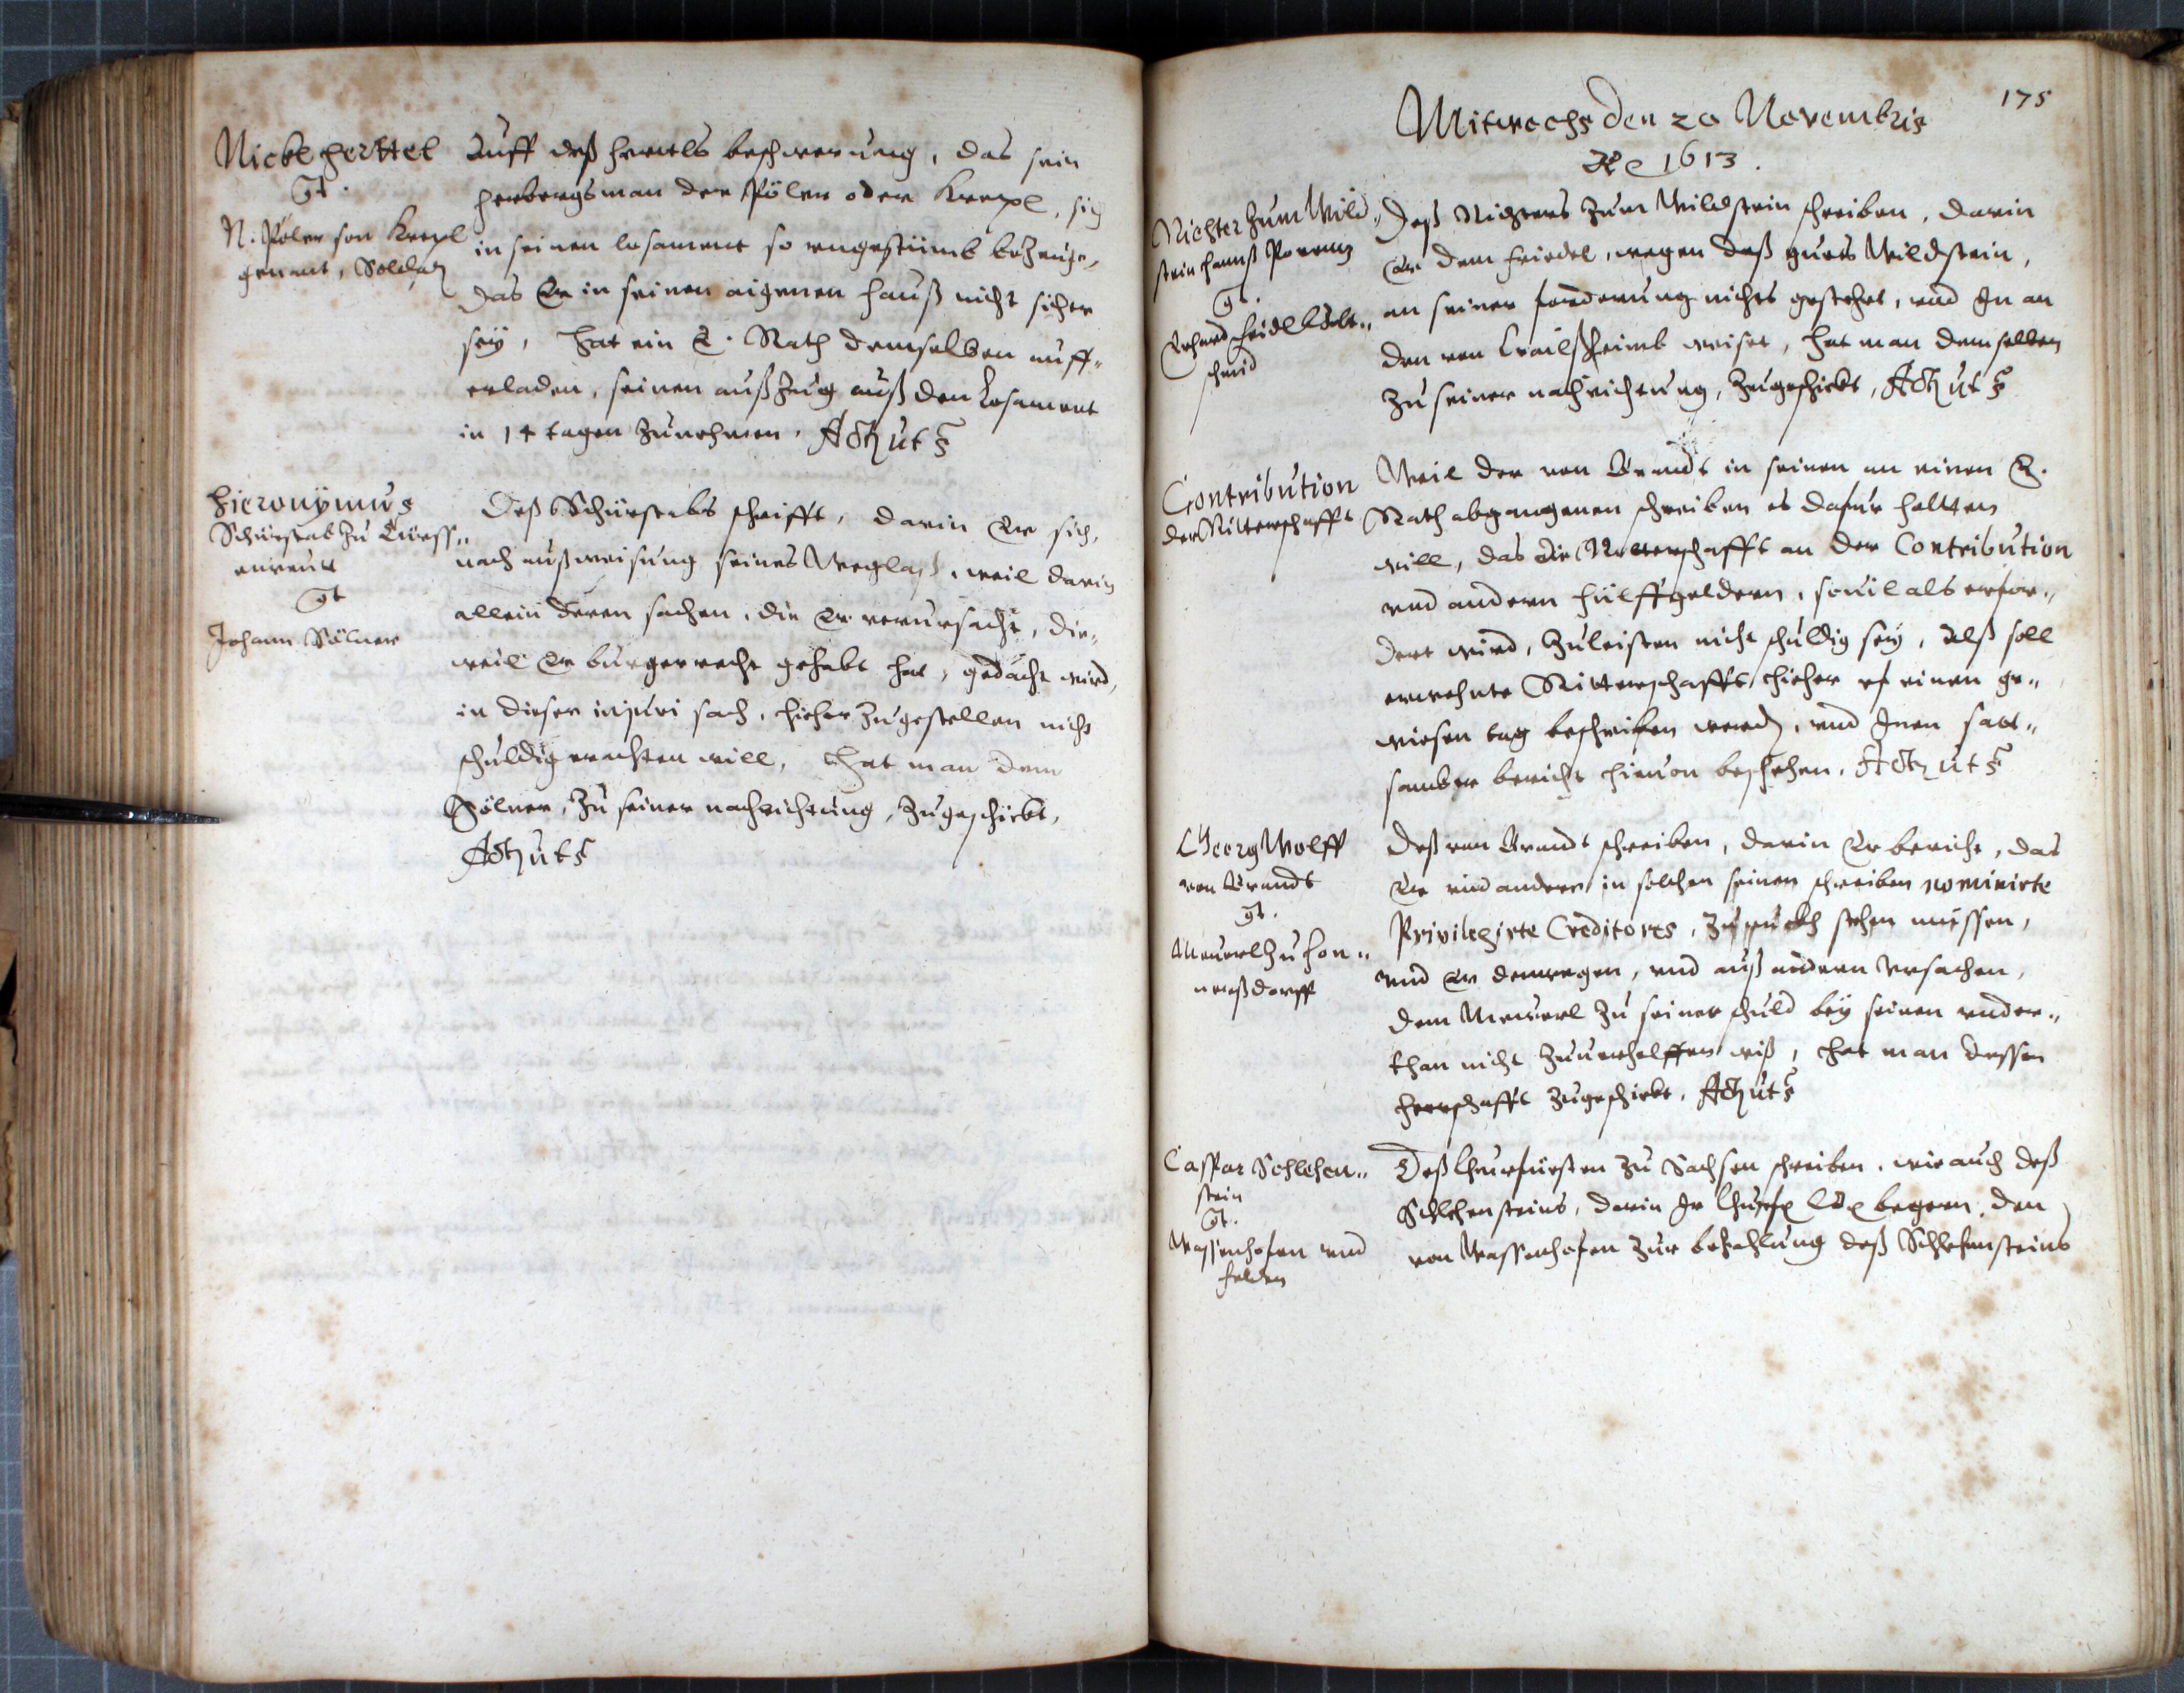 Nickl Herttel
gt.
N. Pöler son Krepl
genant, Soldat
Auff deß Herttls beschwerung, das sein
herbergsman der Pöler oder Krepl, sich
in seinen losament so vngestümb bezeuge,
das Er in seinen aigenen hauß nicht sicher
sey, hat ein E. Rath demselben auff¬
erladen, seinen außzug auß den Losament
in 14 tagen zunehmen. Act ut s
Hieronymus
Schürstab zu
gt
Johann Sölner
Deß Schürstabs schrifft, darin Er sich,
nach außweisung seines Weglaß, weil darin
allein deren sachen, die Er verursacht, die¬
weil Er burgerrecht gehabt hat, gedacht wird,
in dieser injuri sach, hieher zugestellen nicht
schuldig erachten will, hat man dem
Sölner, zu seiner nachrichtung, zugeschickt,
Act ut s
175
Mitwochs den 20 Novembris
Ao 1613.
Richter zum Wild¬
stein Hannß
gt.
Erhard Feidl
schmid
Deß Richters zum Wildstein schreiben, darin
Er dem Feidel, wegen deß guts Wildstein,
an seiner forderung nichts gestehet, und In an
den von Crailßheimb weiset, hat man demselben
zu seiner nachrichtung, zugeschickt, Act ut s
Contribution
der Ritterschafft
Weil der von Brandt in seinen an einen E.
Rath abgangenen schreiben es dafur haltten
will, das die Ritterschafft an der Contribution
vnd andern hülffgeldern, souil als erfor¬
dert wird, zuleisten nicht schuldig sey, Alß soll
ermehnte Ritterschafft, hieher vf einen ge¬
wiesen tag beschriben werden, vnd Inen satt¬
samber bericht hieuon beschehen. Act ut s
Georg Wolff
von Brandt
gt.
Meuerl zu Hon¬
nerßdorff
Deß von Brandt schreiben, darin Er bericht, das
Er vnd andere in solchen seinen schreiben nominirte
Privilegirte Creditores, zuruckh stehen müessen,
vnd Er derowegen, vnd auß andern Vrsachen,
dem Meuerl zu seiner schuld bey seinen vnder¬
than nicht zuuerhelffen wiß, hat man dessen
Herrschafft zugeschickt. Act ut s
Caspar Schlehen¬
stein
gt.
Wassenhofen vnd
Helden
Deß Churfürsten zu Sachsen schreiben, wie auch deß
Schlehensteins, darin Ir Churf begern, den
von Wassenhofen zur bezahlung deß Schlehensteins